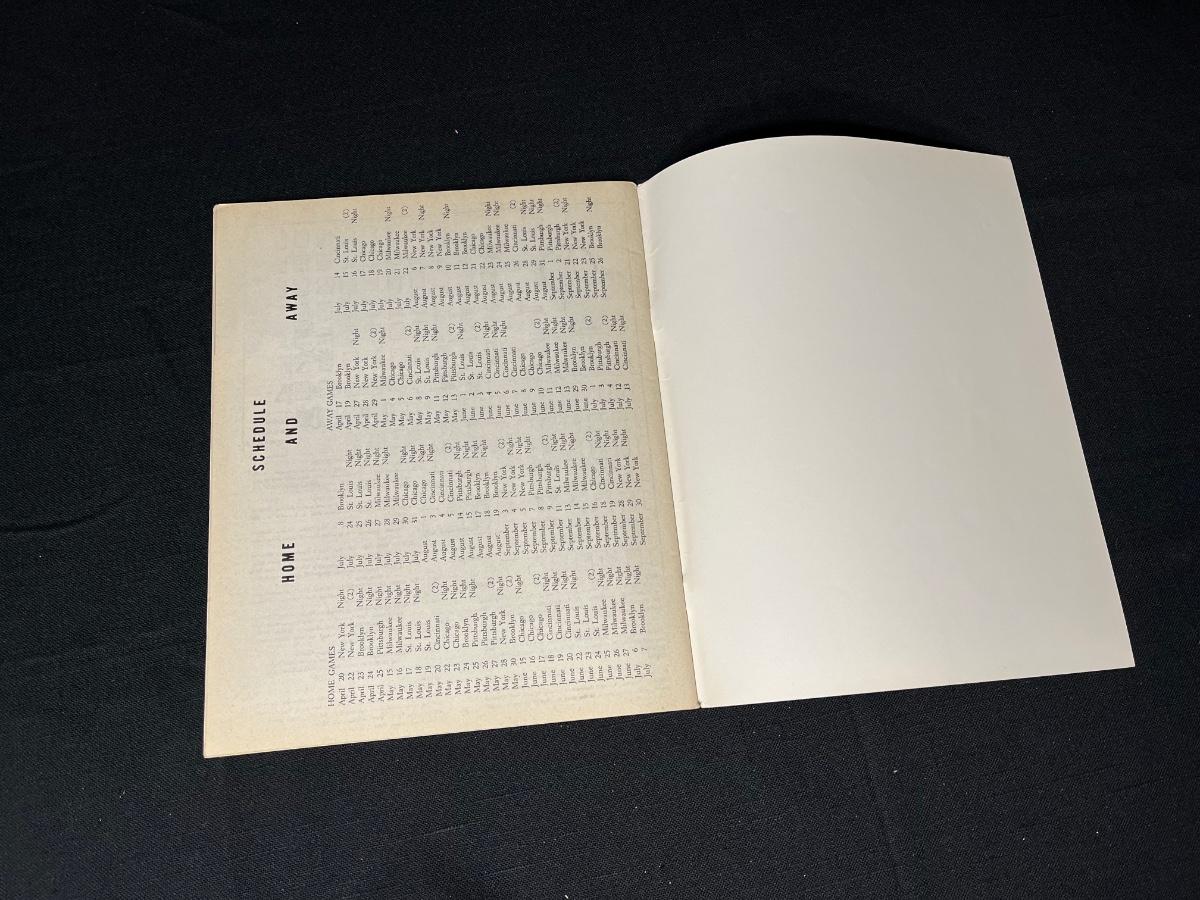 SCHEDULE
HOME AND AWAY
HOME GAMES
April 20 New York Night
April 22 New York (2)
April 23 Brooklyn Night
April 24 Brooklyn Night
April 25 Pittsburgh Night
May 15 Milwaukee Night
May 16 Milwaukee Night
May 17 St. Louis Night
May 18 St. Louis Night
May 19 St. Louis
May 20 Cincinnati (2)
May 22 Chicago Night
May 23 Chicago Night
May 24 Brooklyn Night
May 25 Pittsburgh Night
May 26 Pittsburgh
May 27 Pittsburgh (2)
May 28 New York Night
May 30 Brooklyn (2)
June 15 Chicago Night
June 16 Chicago
June 17 Chicago (2)
June 18 Cincinnati Night
June 19 Cincinnati Night
June 20 Cincinnati Night
June 22 St. Louis Night
June 23 St. Louis
June 24 St. Louis (2)
June 25 Milwaukee Night
June 26 Milwaukee Night
June 27 Milwaukee Night
July 6 Brooklyn Night
July 7 Brooklyn
July 8 Brooklyn
July 24 St. Louis Night
July 25 St. Louis Night
July 26 St. Louis Night
July 27 Milwaukee Night
July 28 Milwaukee Night
July 29 Milwaukee
July 30 Chicago Night
July 31 Chicago Night
August 1 Chicago Night
August 3 Cincinnati Night
August 4 Cincinnati
August 5 Cincinnati (2)
August 14 Pittsburgh Night
August 15 Pittsburgh Night
August 17 Brooklyn Night
August 18 Brooklyn Night
August 19 Brooklyn
September 3 New York (2)
September 4 New York Night
September 5 New York Night
September 7 Pittsburgh Night
September 8 Pittsburgh
September 9 Pittsburgh (2)
September 11 St. Louis Night
September 13 Milwaukee Night
September 14 Milwaukee Night
September 15 Milwaukee
September 16 Chicago (2)
September 18 Cincinnati Night
September 19 Cincinnati Night
September 28 New York Night
September 29 New York Night
September 30 New York
AWAY GAMES
April 17 Brooklyn
April 19 Brooklyn
April 27 New York Night
April 28 New York
April 29 New York (2)
May 1 Milwaukee Night
May 4 Chicago
May 5 Chicago
May 6 Cincinnati (2)
May 8 St. Louis Night
May 9 St. Louis Night
May 11 Pittsburgh Night
May 12 Pittsburgh
May 13 Pittsburgh (2)
June 1 St. Louis Night
June 2 St. Louis
June 3 St. Louis (2)
June 4 Cincinnati Night
June 5 Cincinnati Night
June 6 Cincinnati Night
June 7 Cincinnati
June 8 Chicago
June 9 Chicago
June 10 Chicago (2)
June 11 Milwaukee Night
June 12 Milwaukee Night
June 13 Milwaukee Night
June 29 Brooklyn Night
June 30 Brooklyn
July 1 Brooklyn (2)
July 3 Pittsburgh
July 4 Pittsburgh (2)
July 12 Cincinnati Night
July 13 Cincinnati Night
July 14 Cincinnati
July 15 St. Louis (2)
July 16 St. Louis Night
July 17 Chicago
July 18 Chicago
July 19 Chicago
July 20 Milwaukee Night
July 21 Milwaukee
July 22 Milwaukee (2)
August 6 New York
August 7 New York Night
August 8 New York
August 9 New York
August 10 Brooklyn Night
August 11 Brooklyn
August 12 Brooklyn
August 21 Chicago
August 22 Chicago
August 23 Milwaukee Night
August 24 Milwaukee Night
August 25 Milwaukee
August 26 Cincinnati (2)
August 28 St. Louis Night
August 29 St. Louis Night
August 31 Pittsburgh Night
September 1 Pittsburgh
September 2 Pittsburgh (2)
September 21 New York Night
September 22 New York
September 23 New York
September 25 Brooklyn Night
September 26 Brooklyn